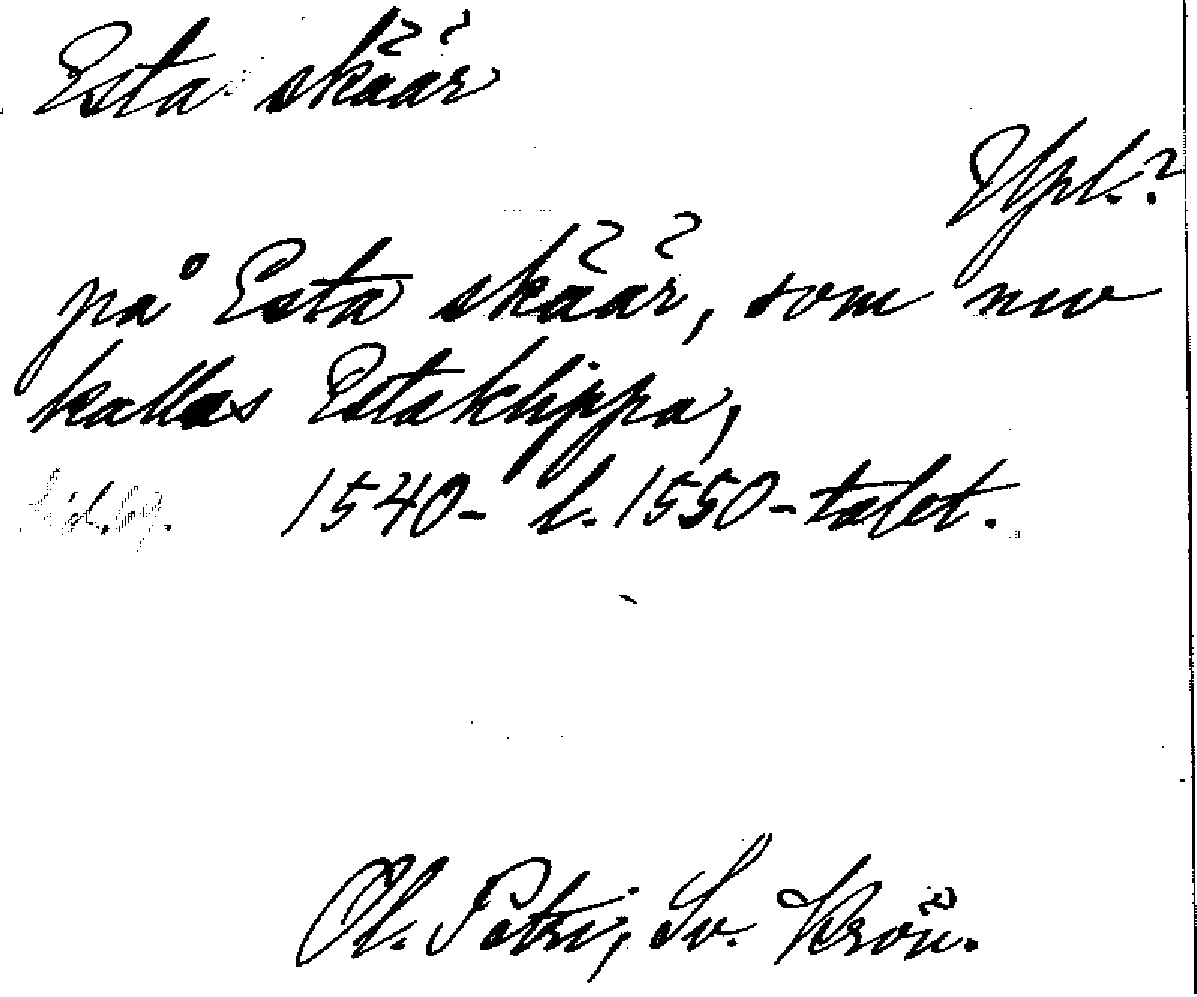 Esta skäär
Upl.?
på Esta skäär, som nw
kallas Estaklippa,
1540- l. 1550-talet.
Ol. Petri, Sv. Krön.